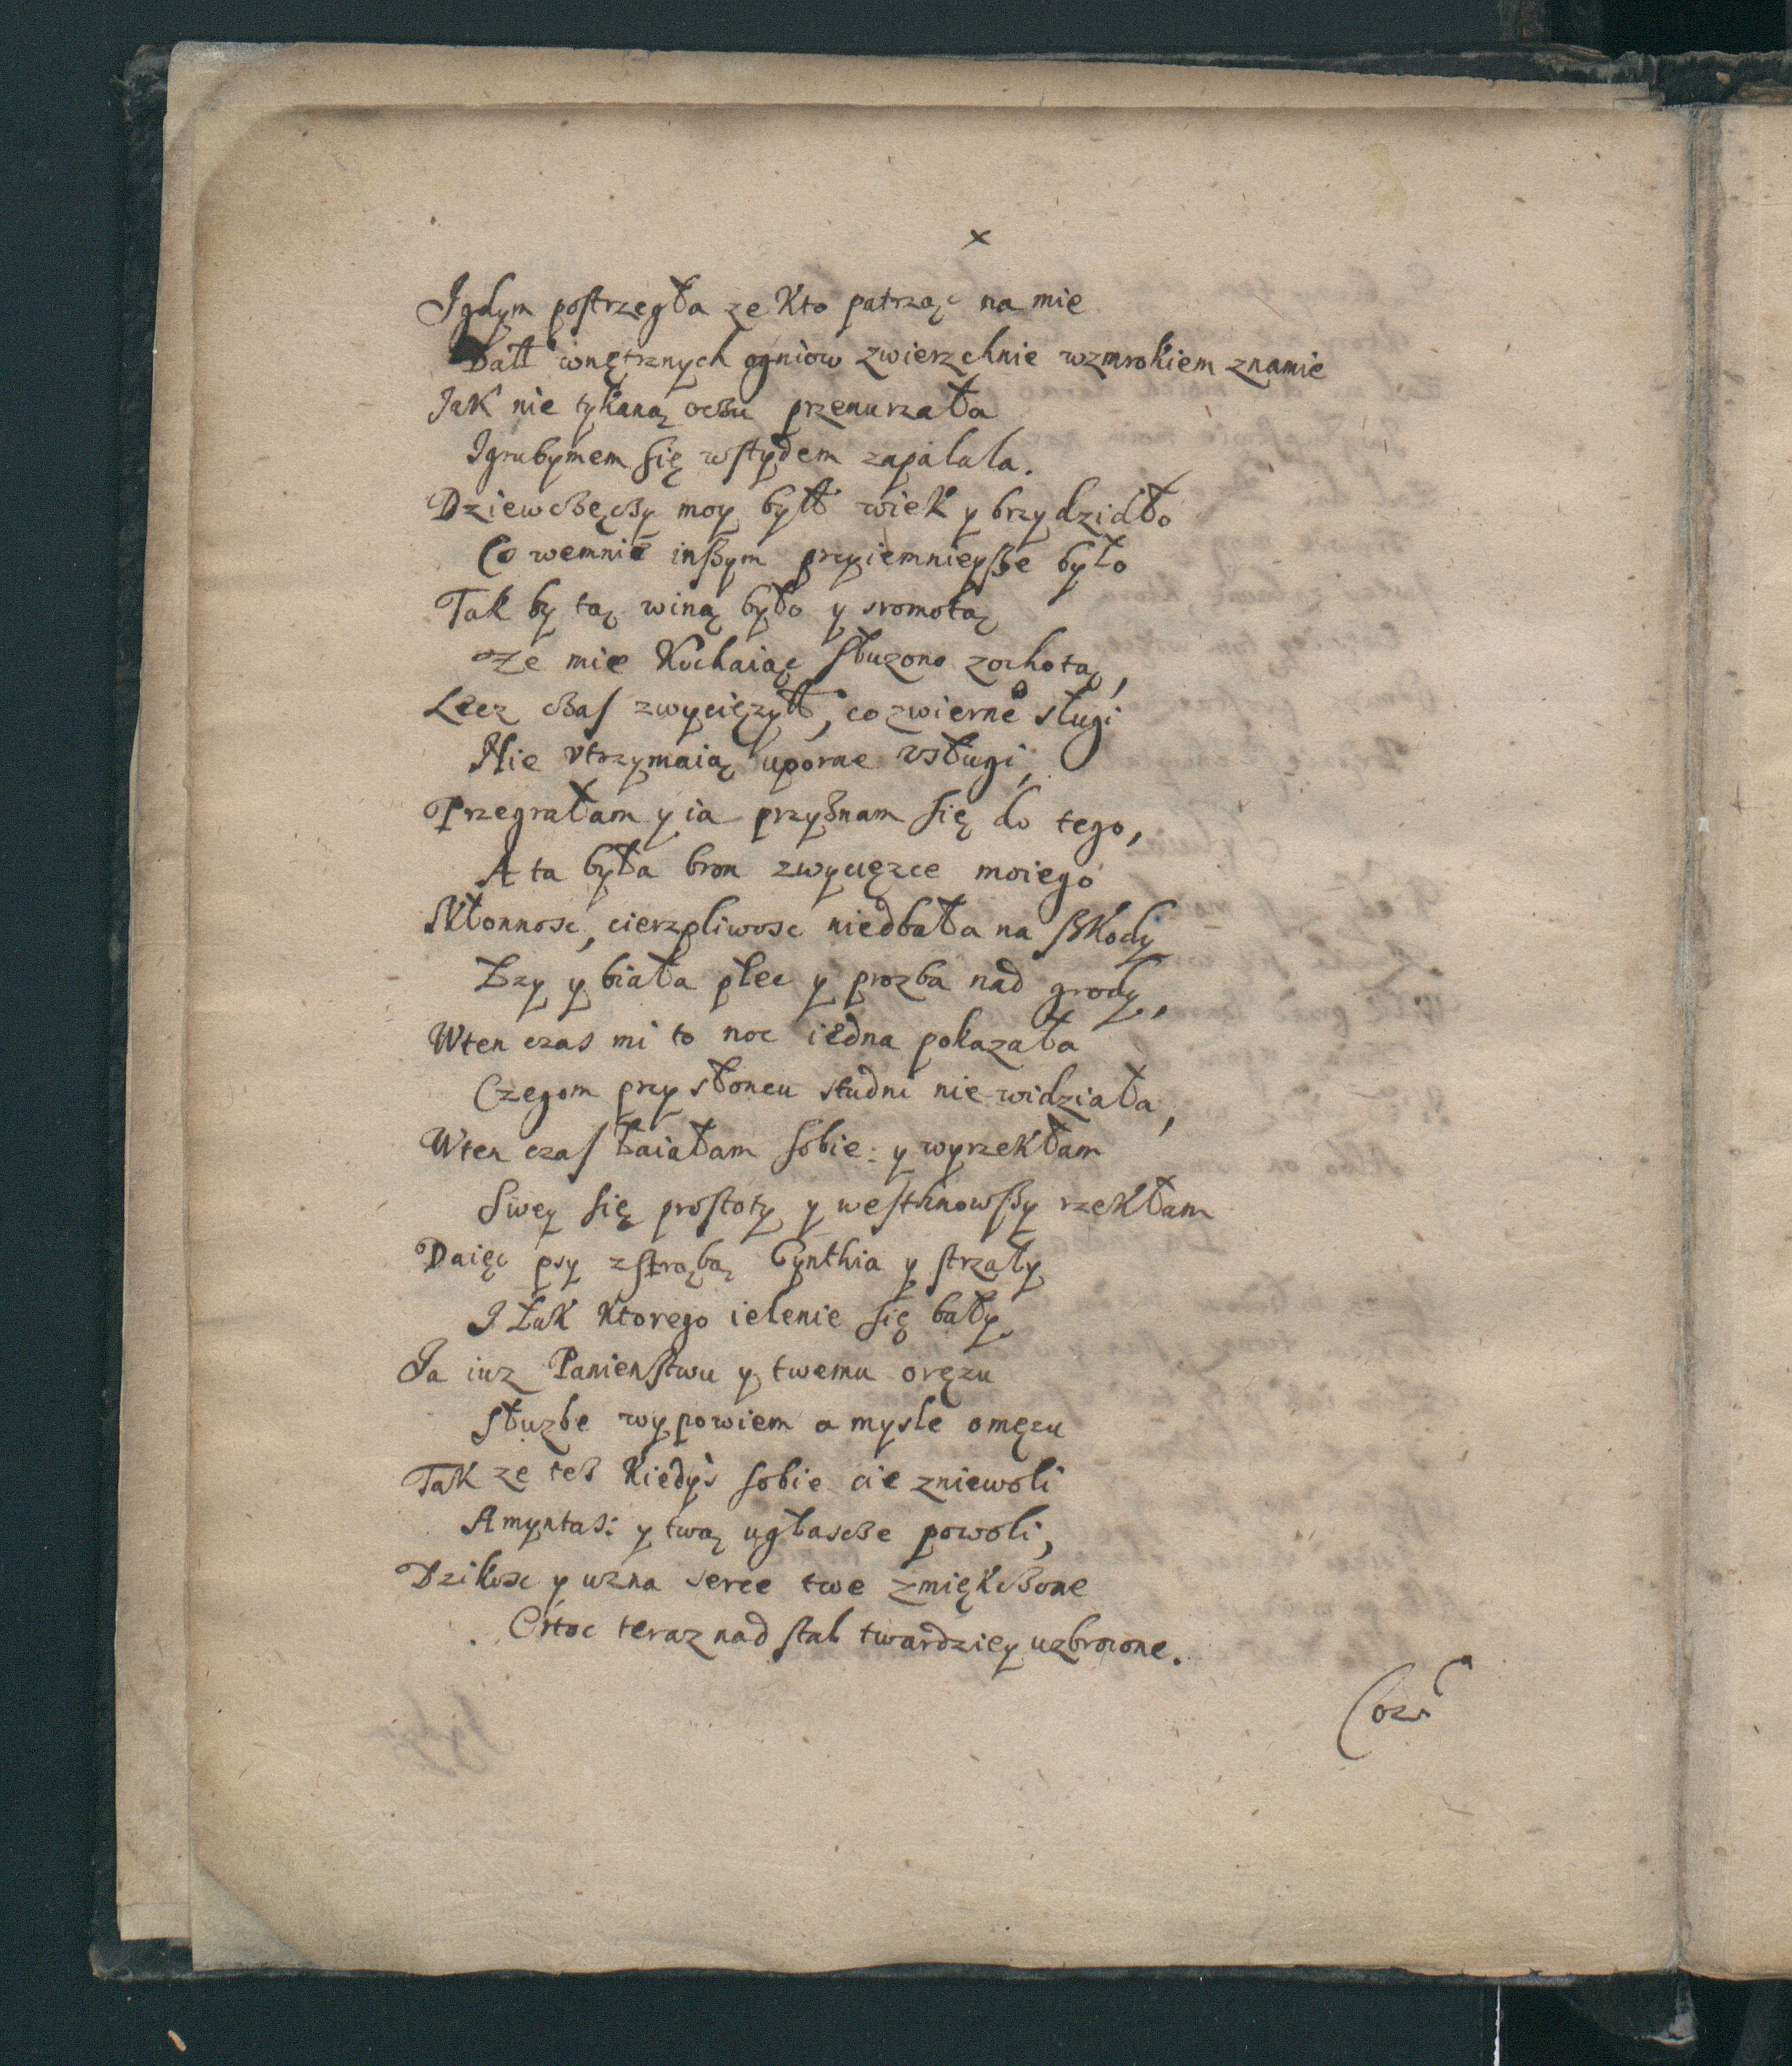 x
I gdym postrzegła ze Kto patrząc na mie
Dał wnętrznych ogniow zwierzchnie wzmrokiem znamie
Jak nie tykaną oczu przenurzała
I grubymem się wstydem zapalała.
Dziewczęczy moy był wiek y brzydziało
Co wemnie inszym przyiemnieysze było
Tak by tą winą było y sromotą
Ze mie Kochaiąc służono zochotą,
Lecz czas zwyciężył, co zwierne sługi
Nie vtrzymaią uporne vsługi,
Przegrałam y ia przyznam się do tego,
A ta była bron zwycięzce moiego
Skłonnosc, cierzpliwosc niedbała na szkody
Łzy y biała płec y prozba nad grody,
Wten czas mi to noc iedna pokazała
Czegom przy słoncu studni nie widziała,
Wten czas łaiałam sobie: y wyrzekłam
Swey się prostoty y westhnowszy rzekłam
Daięc psy ztrąbą Cynthia y strzały
I Łuk Ktorego ielenie się bały
Ja iuz Panienstwu y twemu orężu
służbe wypowiem a mysle omężu
Tak ze też Kiedys sobie cie zniewoli
Amyntas: y twą ugłascze powoli,
Dzikosc y uzna serce twe zmiękczone
Chtoc teraz nad stal twardziey uzbroione.